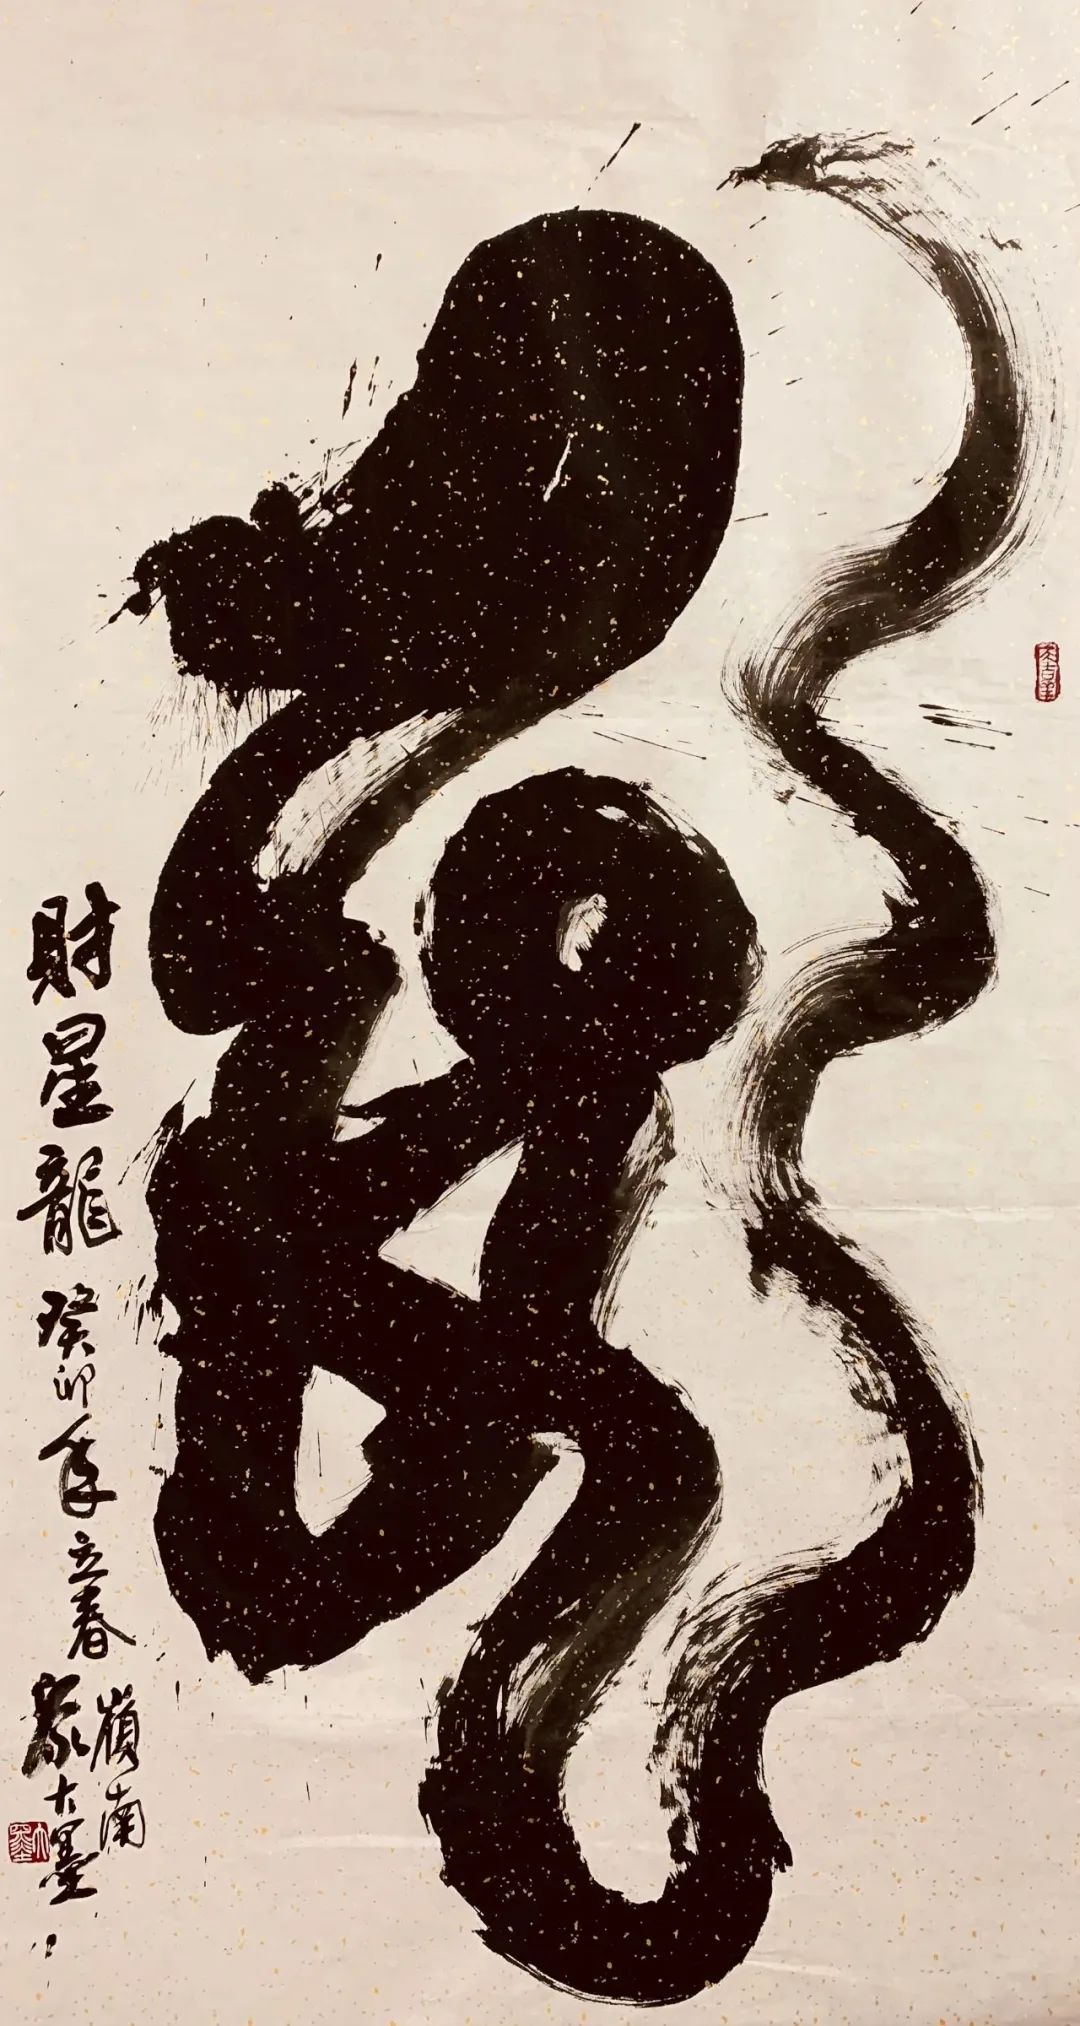 龍
財星龍 癸卯年立春
嶺南
大墨